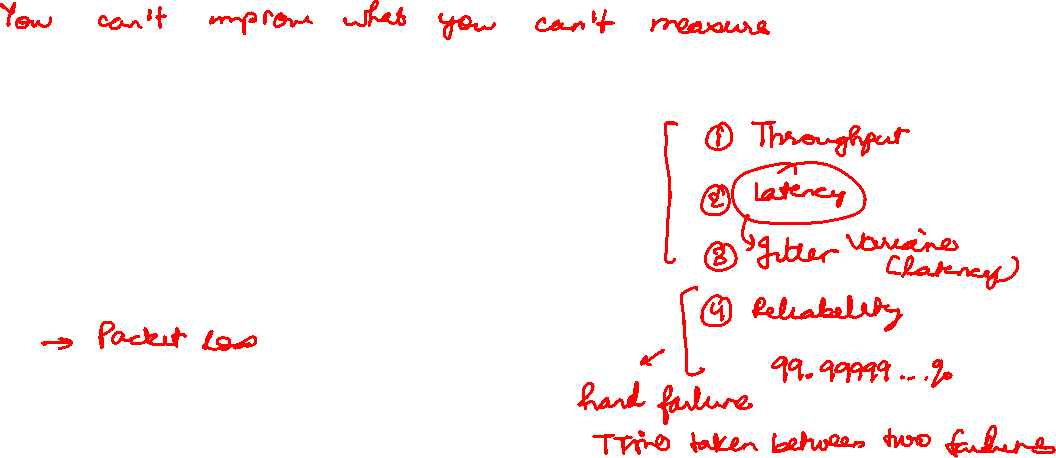 You can't improve what you can't measure
① Throughput
② Latency
③ Jitter Variance
(latency)
④ Reliability
→ Packet Loss
99.99999...%
hard failure
Time taken between two failures